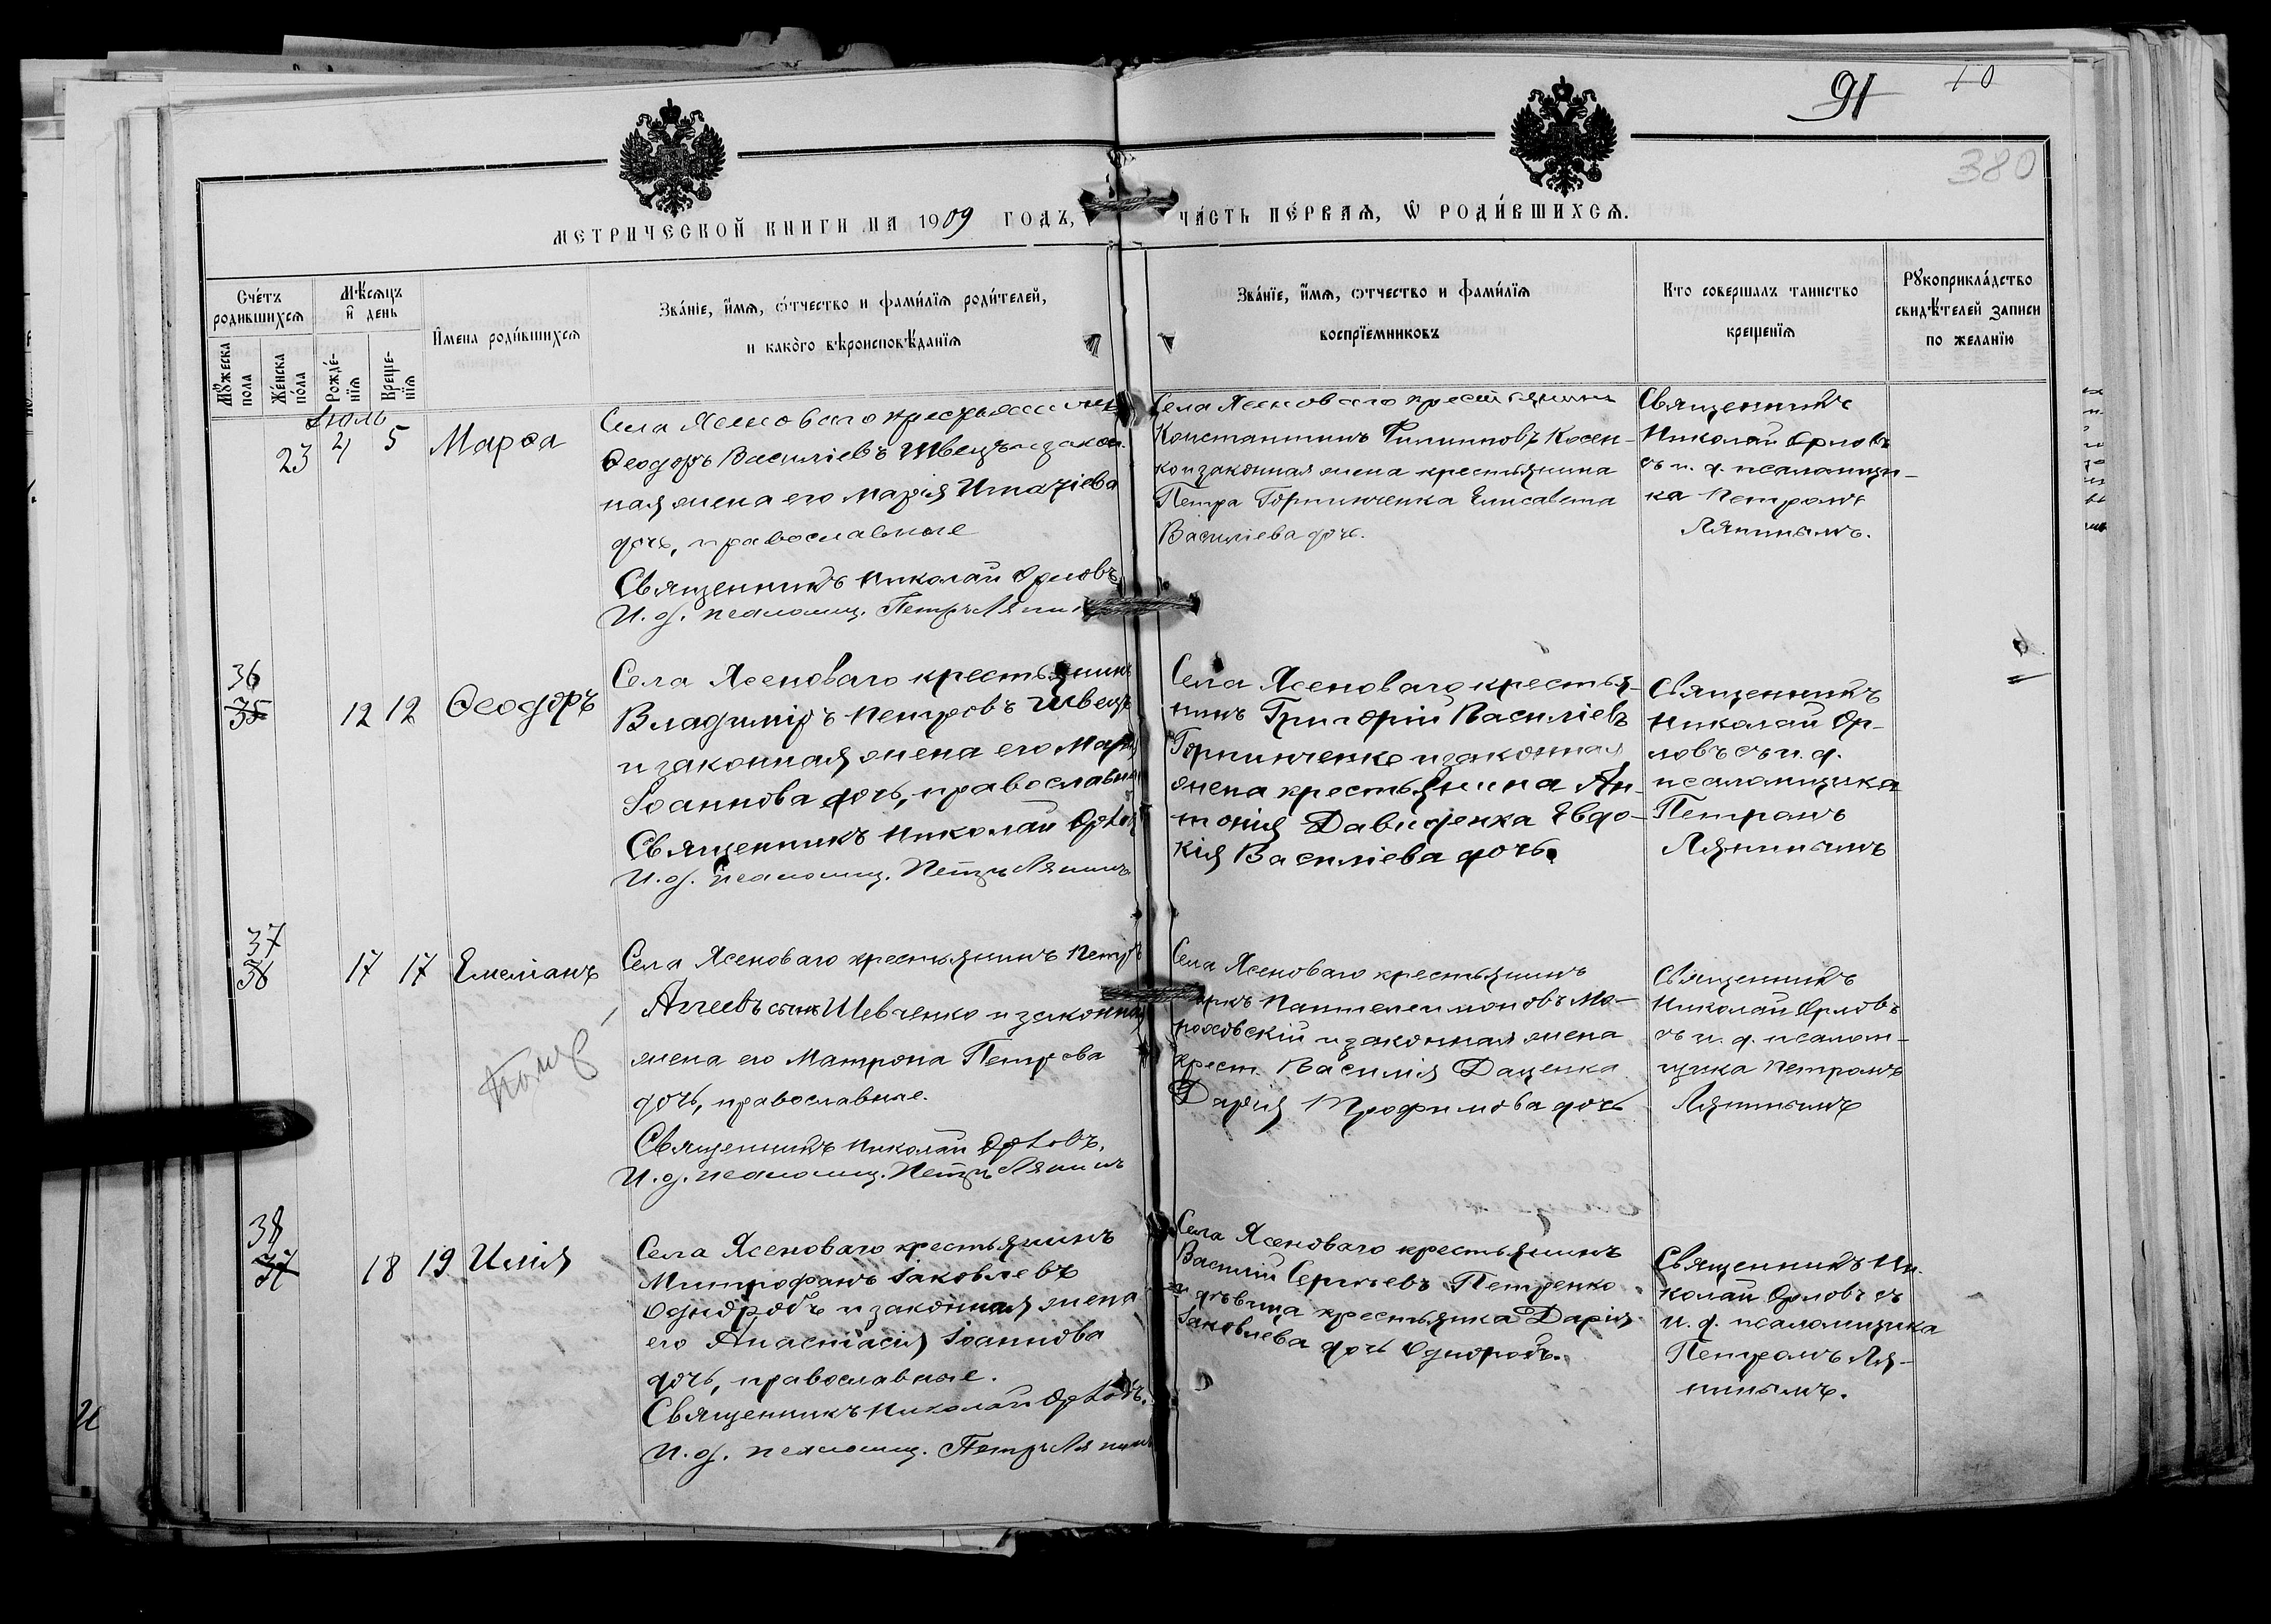 91
10
380
МЕТРИЧЕСКОЙ КНИГИ НА 1909 ГОДЪ,
ЧА́СТЬ ПЕ́РВАѦ, Ѡ҆ РОДИ́ВШИХСѦ.
Сче́тъ родившихсѧ
Мꙋжеска пола
Же́нска по́ла
Мѣ́сѧцъ и҆ день
Рожде́-нїѧ
Креще-нїѧ
И҆мена роди́вшихсѧ
Зва́нїе, и҆́мѧ, ѻ҆́тчество и фами́лїѧ роди́телей,
и како́го вѣроисповѣ́данїѧ
Зва́нїе, и҆́мѧ, ѻтчество и фами́лїѧ
воспрїе́мниковъ
Кто соверша́лъ таинство
креще́нїѧ
Рꙋкоприкла́дство
свидѣ́телей записи
по желанїю
Іюль
23
4
5
Марѳа
Села Ясеноваго крестьянинъ
Ѳеодоръ Василіевъ Швецъ и закон-
ная жена его Марія Игнатіева
дочь, православные
Священникъ Николай Орловъ
И. д. псаломщ. Петръ Ляпинъ
Села Ясеноваго крестьянинъ
Константинъ Филипповъ Косен-
ко и законная жена крестьянина
Петра Горпинченка Елисавета
Василіева дочь.
Священникъ
Николай Орловъ
съ и. д. псаломщи-
ка Петромъ
Ляпинымъ.
36
35
12
12
Ѳеодоръ
Села Ясеноваго крестьянинъ
Владиміръ Петровъ Швецъ
и законная жена его Марія
Іоаннова дочь, православные
Священникъ Николай Орловъ
И. д. псаломщ. Петръ Ляпинъ
Села Ясеноваго крестья-
нинъ Григорій Василіевъ
Горпинченко и законная
жена крестьянина Ан-
тонія Давиденка Евдо-
кія Василіева дочь.
Священникъ
Николай Ор-
ловъ съ и. д.
псаломщика
Петромъ
Ляпинымъ
37
36
17
17
Емеліанъ
Села Ясеноваго крестьянинъ Петръ
Аггеевъ сынъ Шевченко и законная
жена его Матрона Петрова
дочь, православные.
Священникъ Николай Орловъ.
И. д. псаломщ. Петръ Ляпинъ
Села Ясеноваго крестьянинъ
Пантелеимоновъ Мо-
роховскій и законная жена
крест. Василія Даценка
Дарія Трофимова дочь
Священникъ
Николай Орловъ
съ и. д. псалом-
щика Петромъ
Ляпинымъ
38
37
18
19
Илія
Села Ясеноваго крестьянинъ
Митрофанъ Іаковлевъ
Однородъ и законная жена
его Анастасія Іоаннова
дочь, православные.
Священникъ Николай Орловъ.
И. д. псаломщ. Петръ Ляпинъ
Села Ясеноваго крестьянинъ
Василій Сергіевъ Петренко
и дѣвица крестьянка Дарія
Іаковлева дочь Однородъ.
Священникъ Ни-
колай Орловъ съ
и. д. псаломщика
Петромъ Ля-
пинымъ.